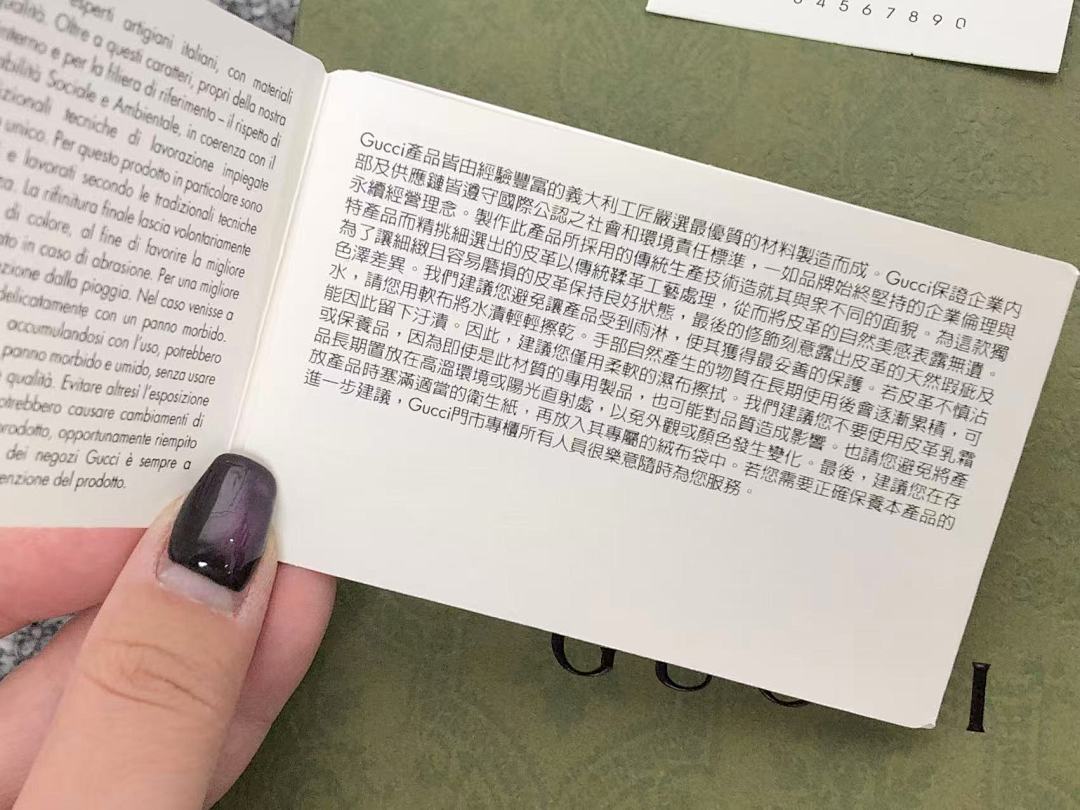 esperti artigiani italiani, con materiali
qualità. Oltre a questi caratteri, propri della nostra
interno e per la filiera di riferimento – il rispetto di
Sociale e Ambientale, in coerenza con il
tecniche di lavorazione impiegate
unico. Per questo prodotto in particolare sono
e lavorati secondo le tradizionali tecniche
La rifinitura finale lascia volontariamente
di colore, al fine di favorire la migliore
in caso di abrasione. Per una migliore
dalla pioggia. Nel caso venisse a
delicatamente con un panno morbido.
accumulandosi con l'uso, potrebbero
panno morbido e umido, senza usare
qualità. Evitare altresì l'esposizione
potrebbero causare cambiamenti di
prodotto, opportunamente riempito
dei negozi Gucci è sempre a
del prodotto.
4 5 6 7 8 9 0
Gucci產品皆由經驗豐富的義大利工匠嚴選最優質的材料製造而成。Gucci保證企業內
部及供應鏈皆遵守國際公認之社會和環境責任標準，一如品牌始終堅持的企業倫理與
永續經營理念。製作此產品所採用的傳統生產技術造就其與眾不同的面貌。為這款獨
特產品而精挑細選出的皮革以傳統鞣革工藝處理，從而將皮革的自然美感表露無遺。
為了讓細緻且容易磨損的皮革保持良好狀態，最後的修飾刻意露出皮革的天然瑕疵及
色澤差異。我們建議您避免讓產品受到雨淋，使其獲得最妥善的保護。若皮革不慎沾
水，請您用軟布將水漬輕輕擦乾。手部自然產生的物質在長期使用後會逐漸累積，可
能因此留下汙漬。因此，建議您僅用柔軟的濕布擦拭。我們建議您不要使用皮革乳霜
或保養品，因為即使是此材質的專用製品，也可能對品質造成影響。也請您避免將產
品長期置放在高溫環境或陽光直射處，以免外觀或顏色發生變化。最後，建議您在存
放產品時塞滿適當的衛生紙，再放入其專屬的絨布袋中。若您需要正確保養本產品的
進一步建議，Gucci門市專櫃所有人員很樂意隨時為您服務。